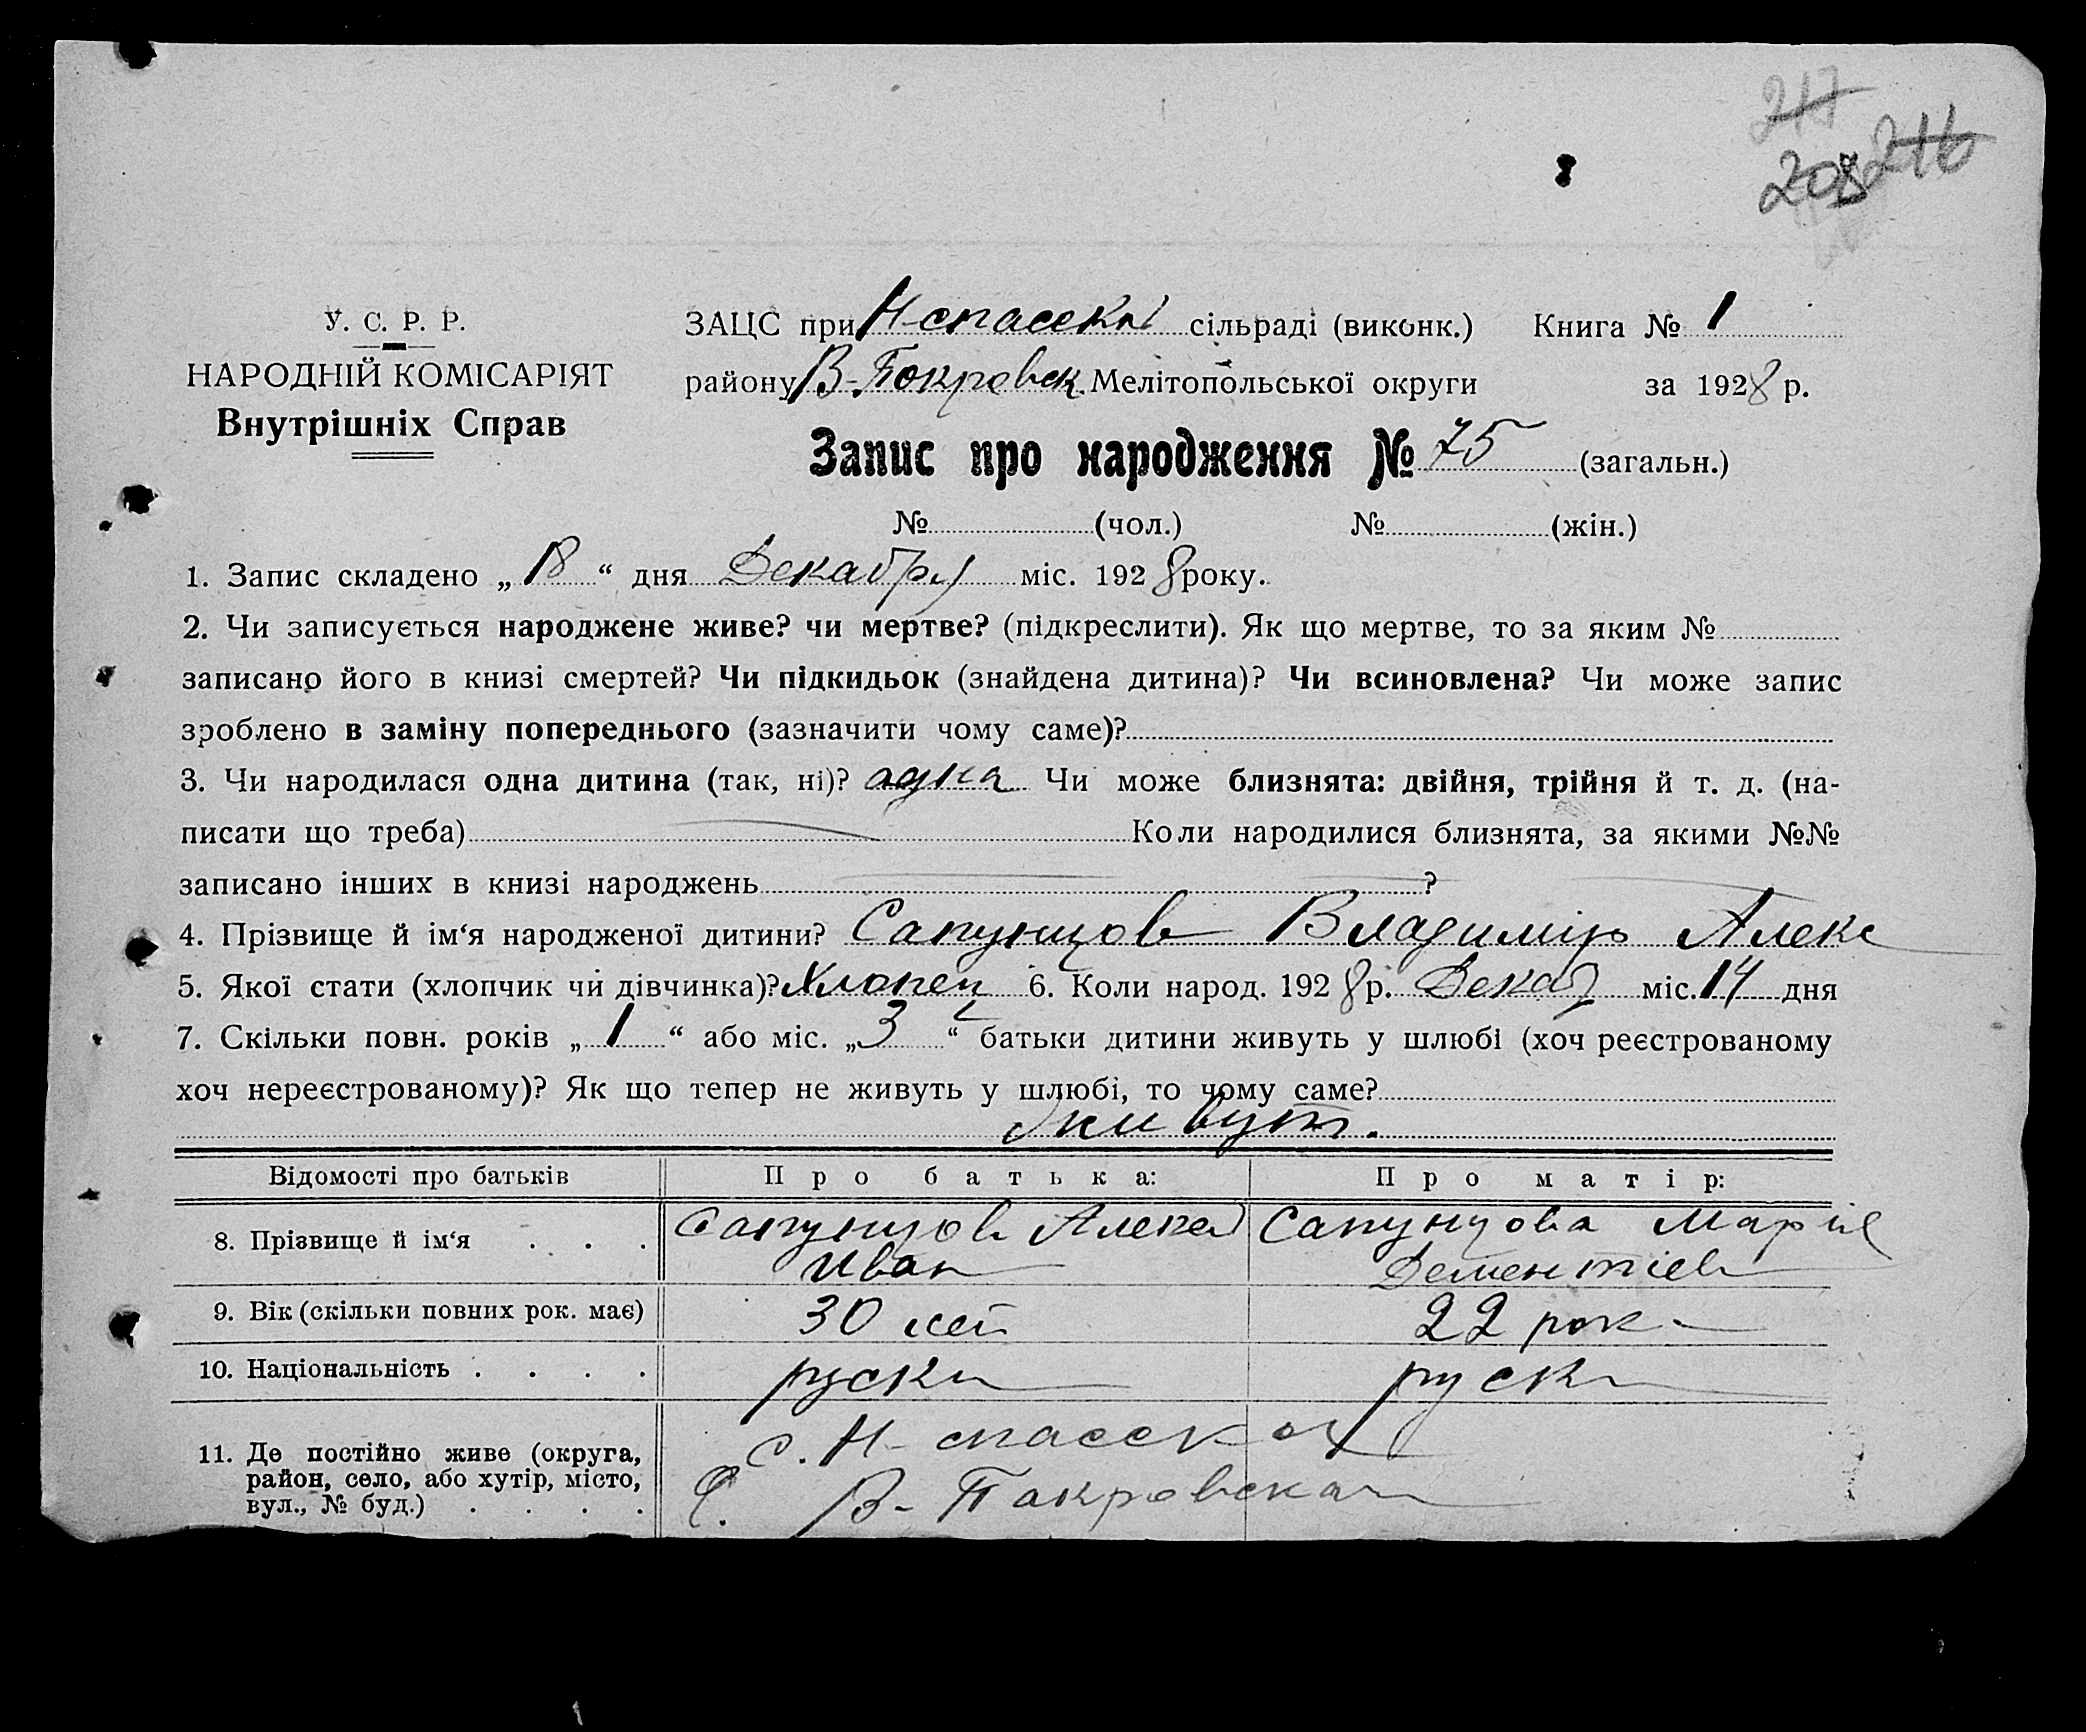 217
208 216
У. С. Р. Р.
НАРОДНІЙ КОМІСАРІЯТ
Внутрішніх Справ
ЗАЦС при Н-спасскі сільраді (виконк.) Книга № 1
району В-Покровск Мелітопольської округи за 1928 р.
Запис про народження № 75 (загальн.)
№ (чол.) № (жін.)
1. Запис складено „ 18 “ дня Декабря міс. 1928 року.
2. Чи записується народжене живе? чи мертве? (підкреслити). Як що мертве, то за яким №
записано його в книзі смертей? Чи підкидьок (знайдена дитина)? Чи всиновлена? Чи може запис
зроблено в заміну попереднього (зазначити чому саме)?
3. Чи народилася одна дитина (так, ні)? одна Чи може близнята: двійня, трійня й т. д. (на-
писати що треба) Коли народилися близнята, за якими №№
записано інших в книзі народжень ?
4. Прізвище й ім‘я народженої дитини? Сапунцов Владимір Алекс
5. Якої стати (хлопчик чи дівчинка)? Хлопец 6. Коли народ. 1928 р. Декаб міс. 14 дня
7. Скільки повн. років „ 1 “ або міс. „ 3 “ батьки дитини живуть у шлюбі (хоч реєстрованому
хоч нереєстрованому)? Як що тепер не живуть у шлюбі, то чому саме?
живут.
Відомості про батьків Про батька: Про матір:
8. Прізвище й ім‘я . . . Сапунцов Алексей Сапунцова Марія
Иван Дементіев
9. Вік (скільки повних рок. має) 30 лет 22 рок
10. Національність . . . . руски руски
11. Де постійно живе (округа, с. Н-спасскоя
район, село, або хутір, місто, В-Пакровска
вул., № буд.) . . . .